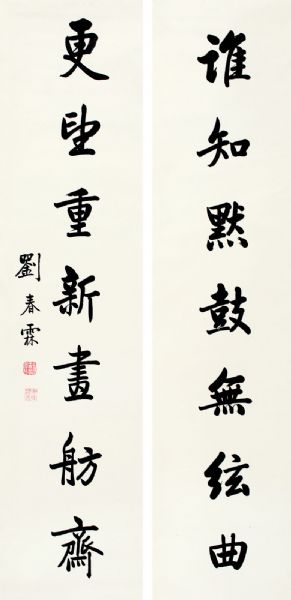 誰知默鼓無絃曲
更望重新畫舫齋
劉春霖